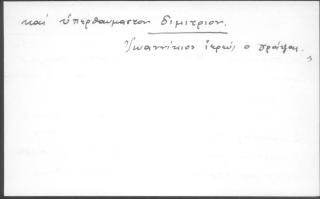 καί ὑπερθαυμαστον διμιτριον.
Ἰωαννίκιου ἱερεύς ὁ γράψας.